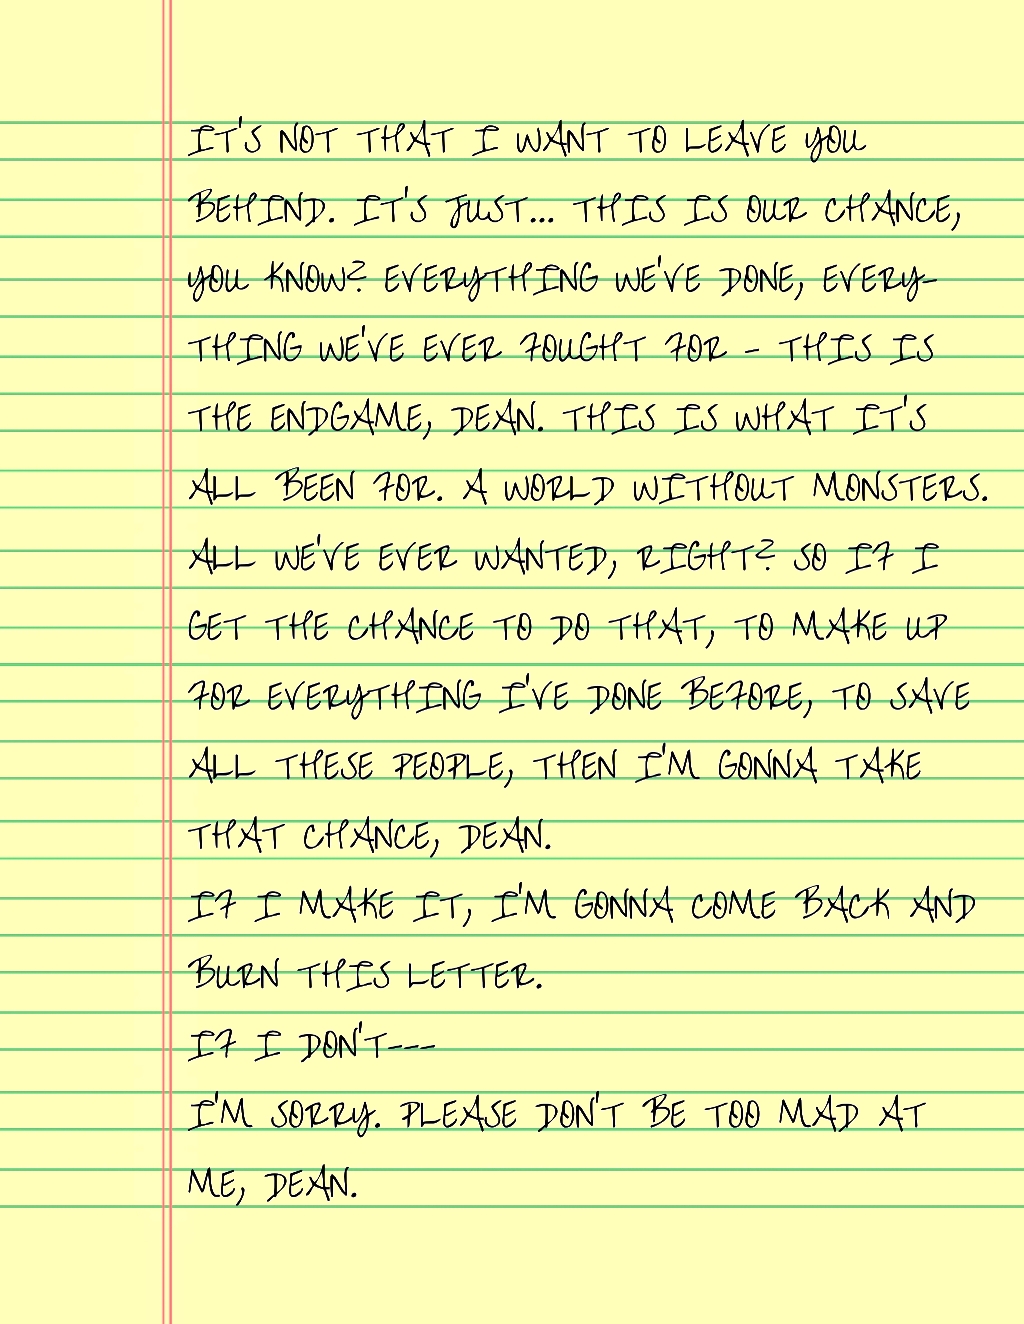 IT'S NOT THAT I WANT TO LEAVE YOU
BEHIND. IT'S JUST... THIS IS OUR CHANCE,
YOU KNOW? EVERYTHING WE'VE DONE, EVERY-
THING WE'VE EVER FOUGHT FOR - THIS IS
THE ENDGAME, DEAN. THIS IS WHAT IT'S
ALL BEEN FOR. A WORLD WITHOUT MONSTERS.
ALL WE'VE EVER WANTED, RIGHT? SO IF I
GET THE CHANCE TO DO THAT, TO MAKE UP
FOR EVERYTHING I'VE DONE BEFORE, TO SAVE
ALL THESE PEOPLE, THEN I'M GONNA TAKE
THAT CHANCE, DEAN.
IF I MAKE IT, I'M GONNA COME BACK AND
BURN THIS LETTER.
IF I DON'T---
I'M SORRY. PLEASE DON'T BE TOO MAD AT
ME, DEAN.